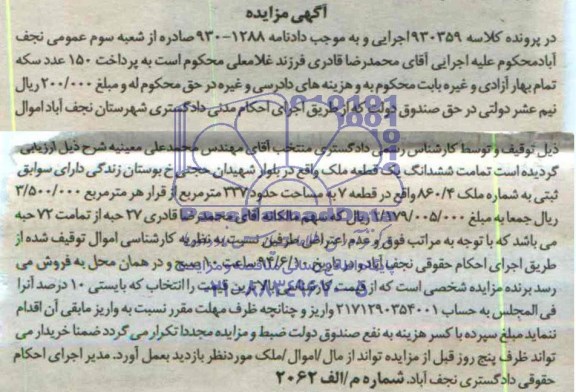 آگهی مزایده
در پرونده کلاسه ۹۳۰۳۵۹ اجرایی و به موجب دادنامه ۱۲۸۸-۹۳۰ صادره از شعبه سوم عمومی نجف
آباد محکوم علیه اجرایی آقای محمدرضا قادری فرزند غلامعلی محکوم است به پرداخت ۱۵۰ عدد سکه
تمام بهار آزادی و غیره بابت محکوم به و هزینه های دادرسی و غیره در حق محکوم له و مبلغ ۲۰۰/۰۰۰ ریال
نیم عشر دولتی در حق صندوق دولت که از طریق اجرای احکام مدنی دادگستری شهرستان نجف آباد اموال
ذیل توقیف و توسط کارشناس رسمی دادگستری منتخب آقای مهندس محمدعلی معینیه شرح ذیل ارزیابی
گردیده است تمامت ششدانگ یک قطعه ملک واقع در بلوار شهیدان حججی خ بوستان زندگی دارای سوابق
ثبتی به شماره ملک ۸۶۰/۴ واقع در قطعه ۷ به مساحت حدود ۳۳۷ مترمربع از قرار هر مترمربع ۳/۵۰۰/۰۰۰
ریال جمعا به مبلغ ۱/۱۷۹/۰۰۵/۰۰۰ ریال که سهم مالکانه آقای محمدرضا قادری ۲۷ حبه از تمامت ۷۲ حبه
می باشد که با توجه به مراتب فوق و عدم اعتراض طرفین نسبت به نظریه کارشناسی اموال توقیف شده از
طریق اجرای احکام حقوقی نجف آباد در تاریخ ساعت ۱۰ صبح و در همان محل به فروش می
رسد برنده مزایده شخصی است که از قیمت کارشناسی بالاترین قیمت را انتخاب که بایستی ۱۰ درصد آنرا
فی المجلس به حساب ۲۱۷۱۲۹۰۳۵۴۰۰۱ واریز و چنانچه ظرف مهلت مقرر نسبت به واریز مابقی آن اقدام
ننماید مبلغ سپرده با کسر هزینه به نفع صندوق دولت ضبط و مزایده مجددا تکرار می گردد ضمنا خریدار می
تواند ظرف پنج روز قبل از مزایده تواند از مال/اموال/ملک موردنظر بازدید بعمل آورد. مدیر اجرای احکام
حقوقی دادگستری نجف آباد. شماره م/الف ۲۰۶۲